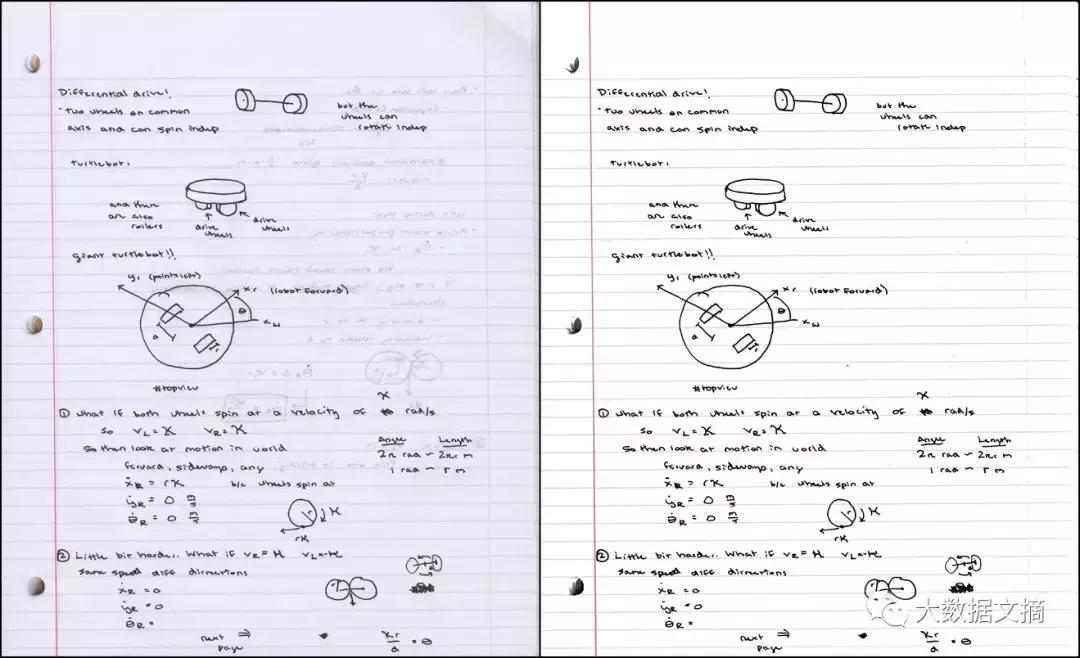 Differential drive!
- two wheels on common
axis and can spin indep
but the
wheels can
rotate indep
turtlebot:
and there
are also
rollers
drive
wheels
drive
wheels
giant turtlebot!!
yr (points left)
xr (robot forward)
θ
xw
a
#topview
① What if both wheels spin at a velocity of x rad/s
so vL = X vR = X
So then look at motion in world
forward, sideways, any
Angle Length
2π rad ~ 2πr m
1 rad ~ r m
ẋR = rX b/c wheels spin at
ẏR = 0 m/s
θ̇R = 0
r
rX
② Little bit harder. What if vR = X vL = -X
same speed diff directions
ẋR = 0
ẏR = 0
θ̇R =
next ⇒
page
Xr/a = θ
Differential drive!
- two wheels on common
axis and can spin indep
but the
wheels can
rotate indep
turtlebot:
and there
are also
rollers
drive
wheels
drive
wheels
giant turtlebot!!
yr (points left)
xr (robot forward)
θ
xw
a
#topview
① What if both wheels spin at a velocity of x rad/s
so vL = X vR = X
So then look at motion in world
forward, sideways, any
Angle Length
2π rad ~ 2πr m
1 rad ~ r m
ẋR = rX b/c wheels spin at
ẏR = 0 m/s
θ̇R = 0
r
rX
② Little bit harder. What if vR = X vL = -X
same speed diff directions
ẋR = 0
ẏR = 0
θ̇R =
next ⇒
page
Xr/a = θ
大数据文摘